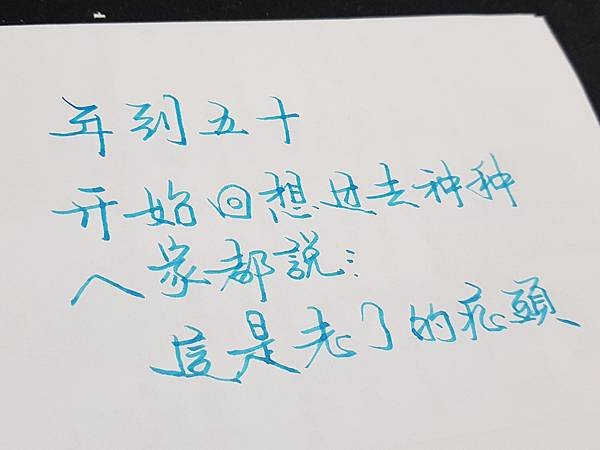 年到五十
开始回想过去种种
人家都說⋮
這是老了的症頭